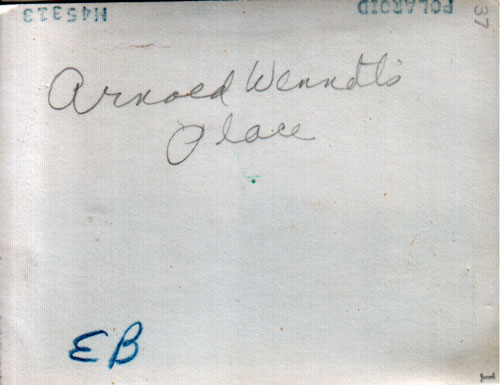 M45313 POLAROID
37
Arnold Wenndt's
Place
EB
1